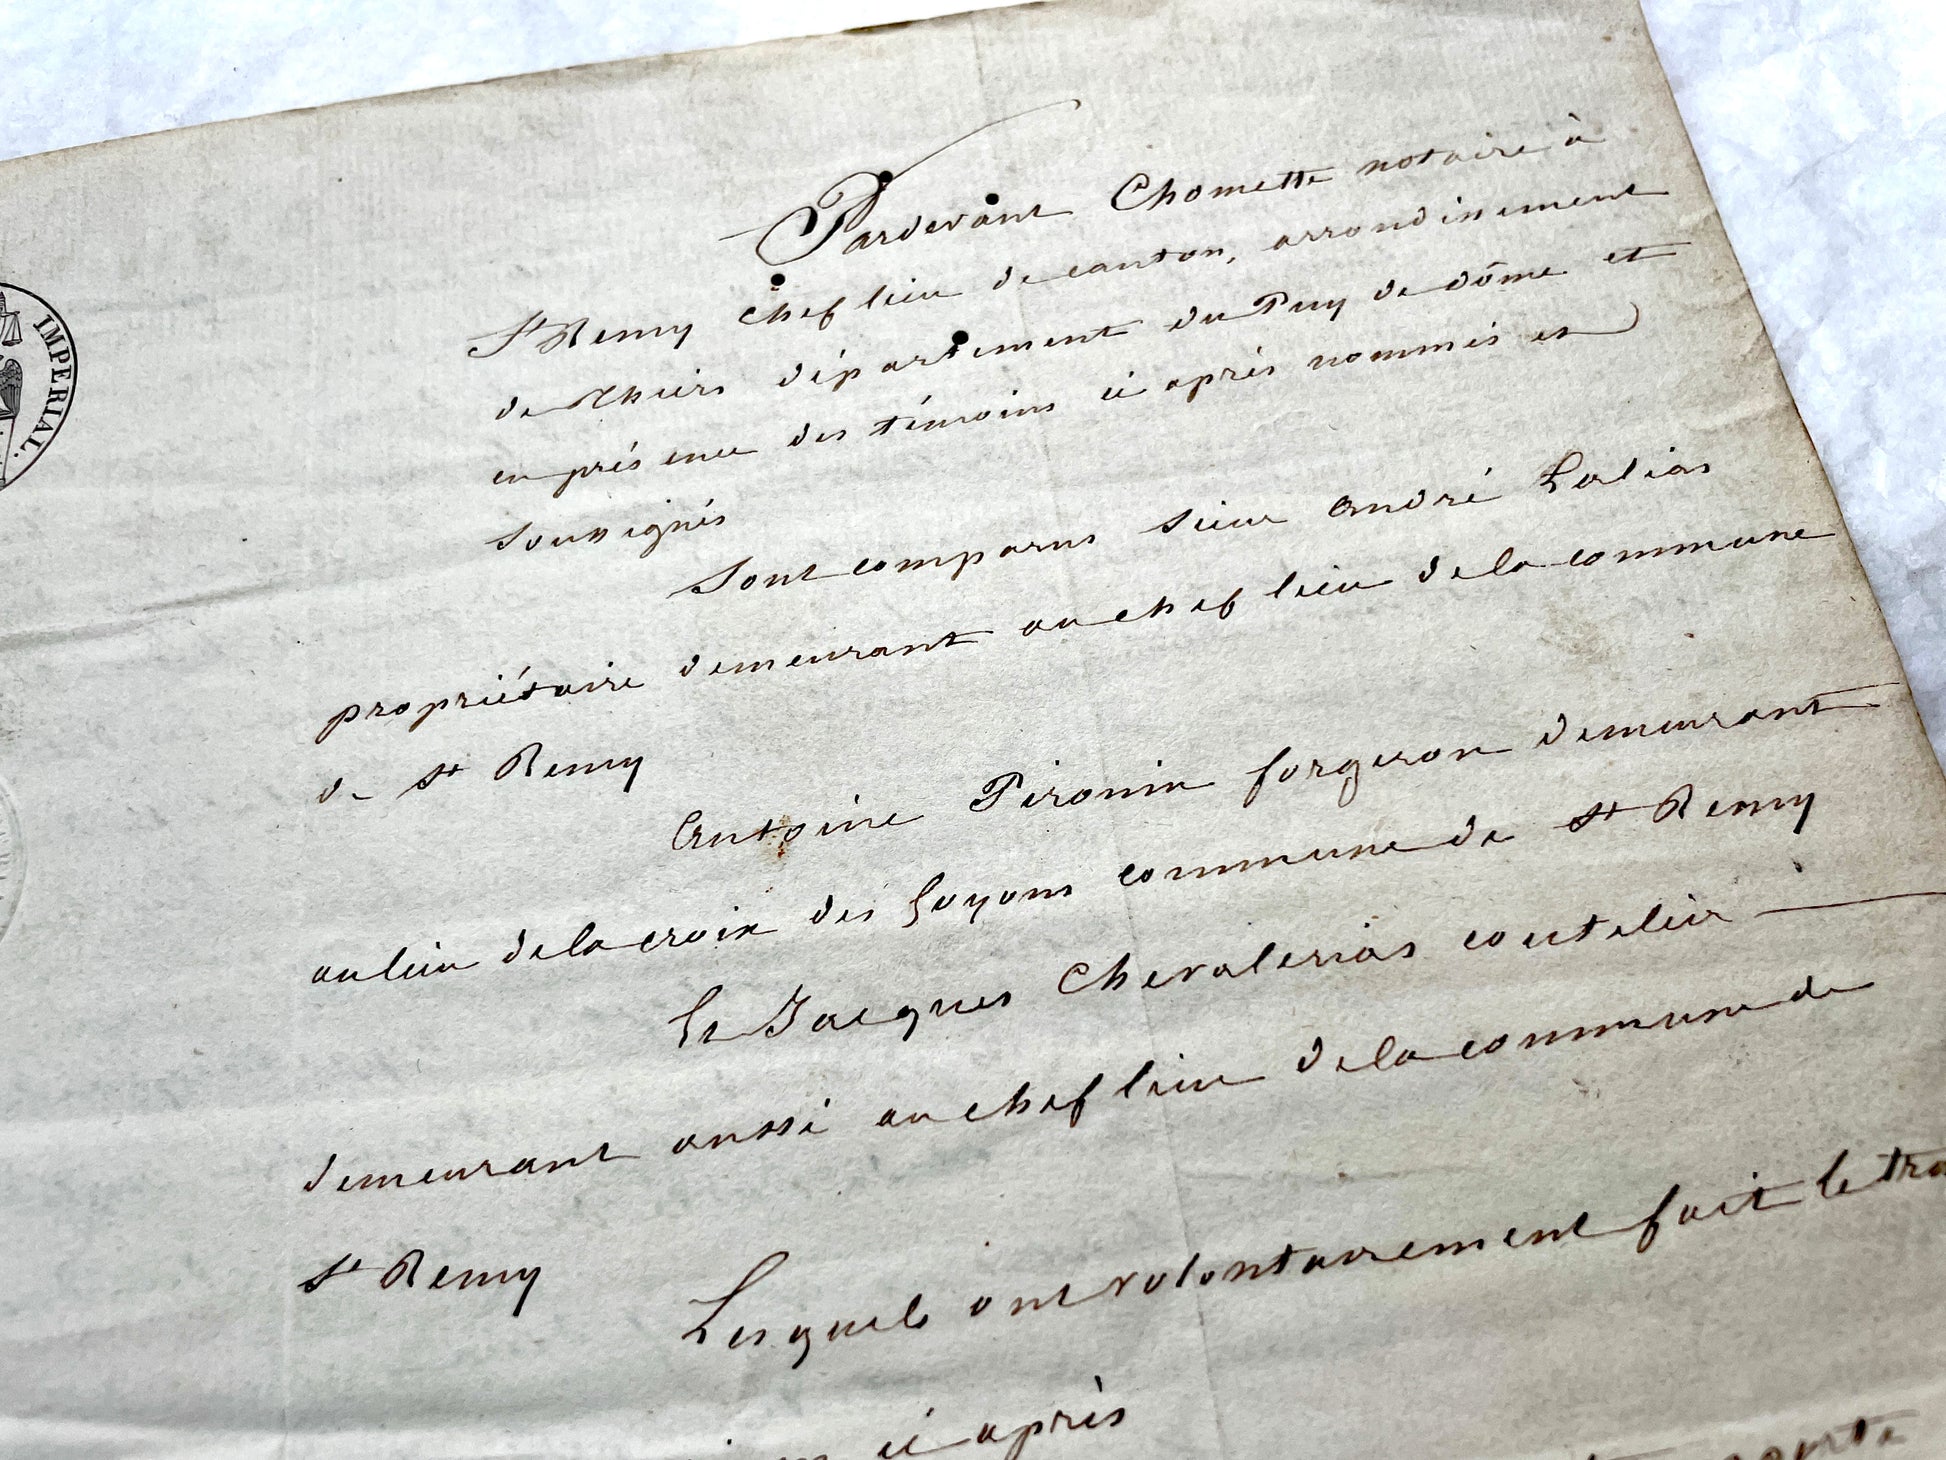 IMPERIAL.
Pardevant Chomette notaire à
St Remy chef lieu de canton, arrondissement
de Thiers département du Puy de dôme et
en présence des témoins ci après nommés et
soussignés
Sont comparus sieur André Lalias
propriétaire demeurant au chef lieu de la commune
de St Remy
Antoine Pironin forgeron demeurant
au lieu de la croix des Goyons commune de St Remy
Et Jacques Chevalerias coutelier
demeurant aussi au chef lieu de la commune de
St Remy
Lesquels ont volontairement fait le tra
ci après